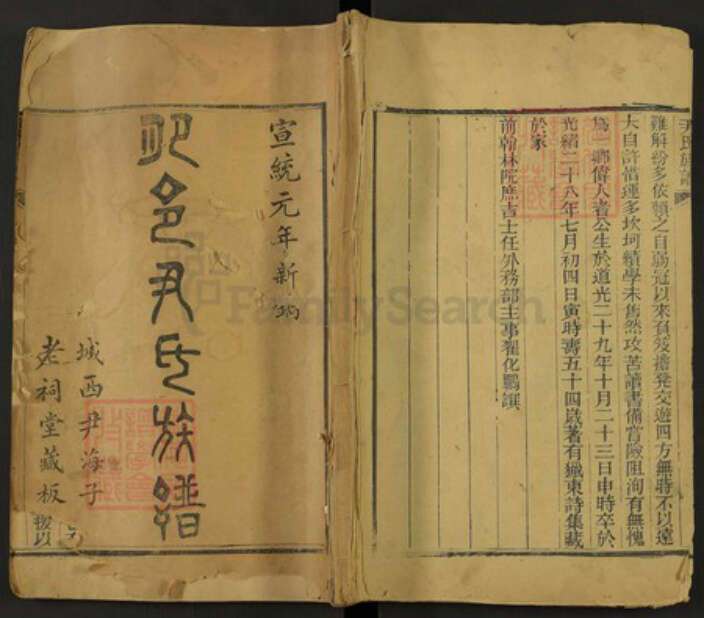 尹氏族譜
難解紛多依頼之自弱冠以來負笈擔簦交遊四方無時不以遠
大自許惜運多坎坷績學未售然攻苦讀書備嘗險阻洵有無愧
為一鄉偉人者公生於道光二十九年十月二十三日申時卒於
光緒二十八年七月初四日寅時壽五十四歲著有 東詩集藏
於家
前翰林院庶吉士任外務部主事翟化鵬譔
宣統元年新
邑尹氏族譜
城西尹海子
老祠堂藏板
FamilySearch